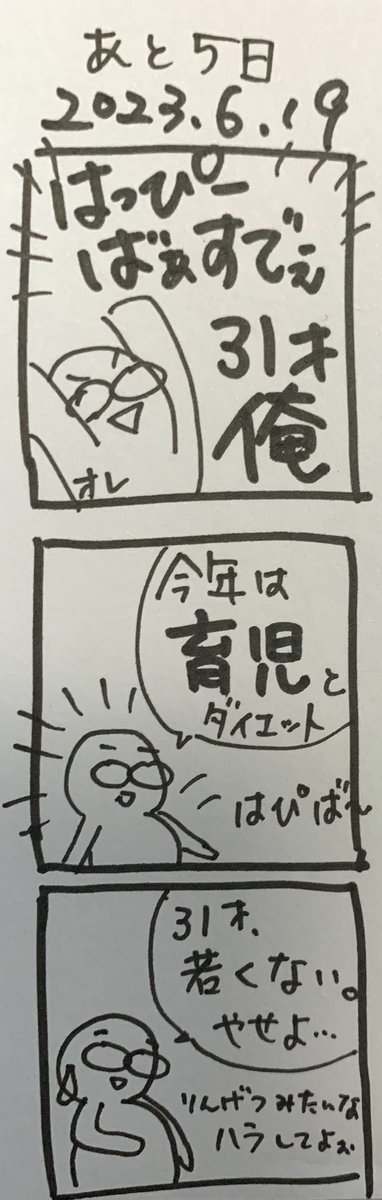 あと5日
2023.6.19
はっぴー
ばぁすでぇ
31才
俺
オレ
今年は
育児と
ダイエット
はぴば〜
31才、
若くない。
やせよ…
りんげつみたいな
ハラしてよぉ